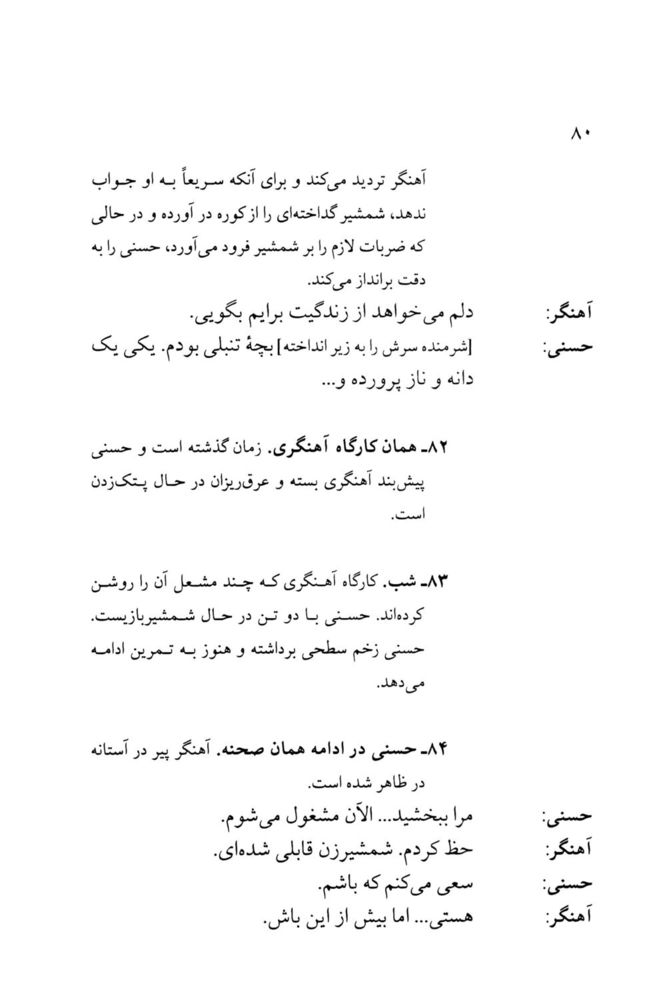 ۸۰
آهنگر تردید می‌کند و برای آنکه سریعاً به او جواب
ندهد، شمشیر گداخته‌ای را از کوره در آورده و در حالی
که ضربات لازم را بر شمشیر فرود می‌آورد، حسنی را به
دقت برانداز می‌کند.
آهنگر: دلم می‌خواهد از زندگیت برایم بگویی.
حسنی: [شرمنده سرش را به زیر انداخته] بچهٔ تنبلی بودم. یکی یک
دانه و ناز پرورده و...
۸۲ـ همان کارگاه آهنگری. زمان گذشته است و حسنی
پیش‌بند آهنگری بسته و عرق‌ریزان در حال پتک‌زدن
است.
۸۳ـ شب. کارگاه آهنگری که چند مشعل آن را روشن
کرده‌اند. حسنی با دو تن در حال شمشیربازیست.
حسنی زخم سطحی برداشته و هنوز به تمرین ادامه
می‌دهد.
۸۴ـ حسنی در ادامه همان صحنه. آهنگر پیر در آستانه
در ظاهر شده است.
حسنی: مرا ببخشید... الآن مشغول می‌شوم.
آهنگر: حظ کردم. شمشیرزن قابلی شده‌ای.
حسنی: سعی می‌کنم که باشم.
آهنگر: هستی... اما بیش از این باش.